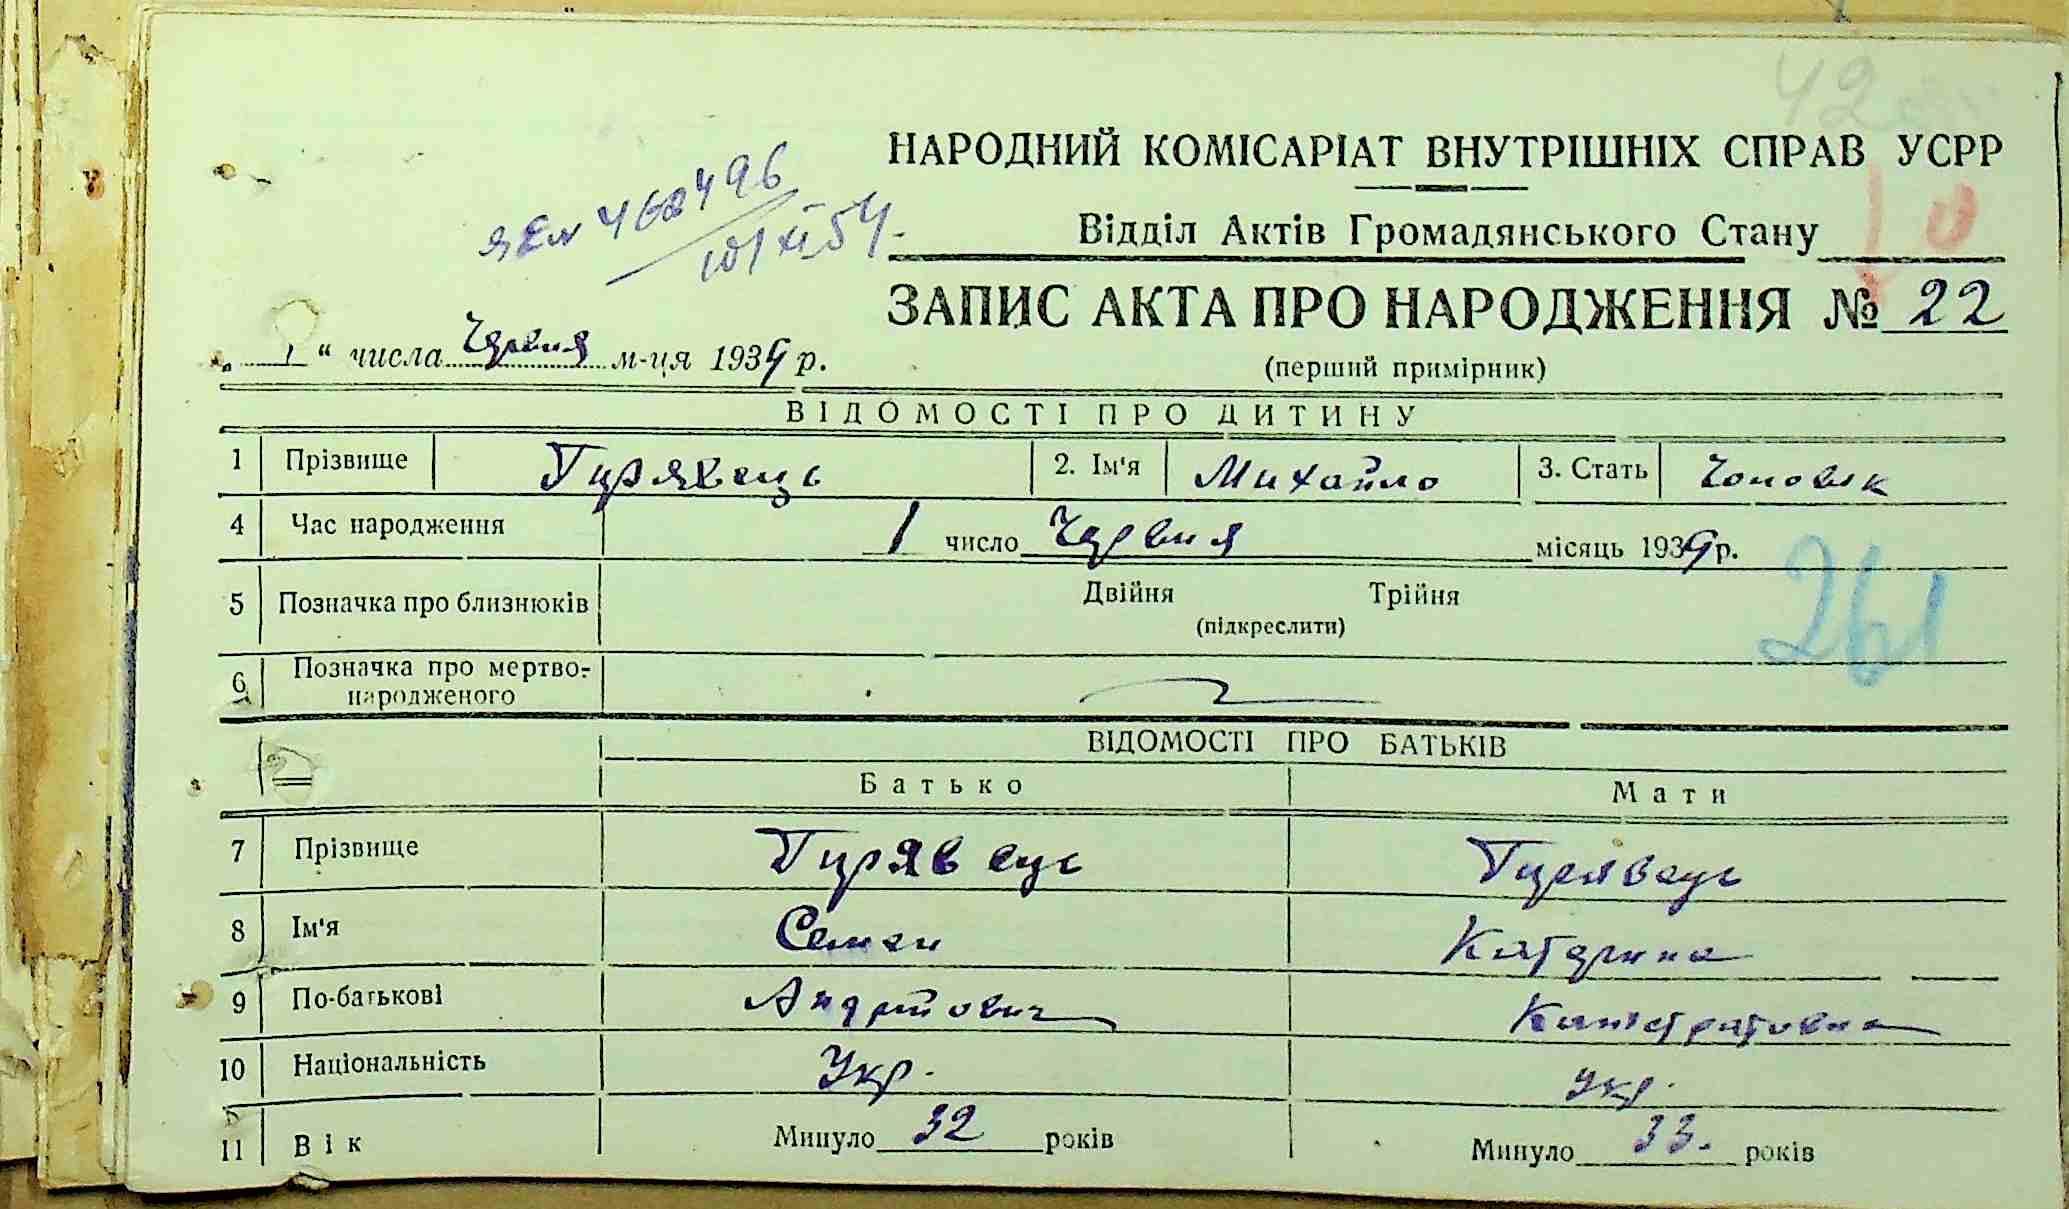 42
НАРОДНИЙ КОМІСАРІАТ ВНУТРІШНІХ СПРАВ УСРР
468496
10/XI 54.
Відділ Актів Громадянського Стану
10
ЗАПИС АКТА ПРО НАРОДЖЕННЯ № 22
(перший примірник)
„ 1 “ числа Червня м-ця 1934 р.
ВІДОМОСТІ ПРО ДИТИНУ
1 Прізвище Гирявець 2. Ім'я Михайло 3. Стать Чоловік
4 Час народження 1 число Червня місяць 1934 р.
261
5 Позначка про близнюків Двійня Трійня
(підкреслити)
6 Позначка про мертво-
народженого
ВІДОМОСТІ ПРО БАТЬКІВ
Батько Мати
7 Прізвище Гирявець Гирявець
8 Ім'я Семен Катерина
9 По-батькові Андрійович
10 Національність Укр. Укр.
11 Вік Минуло 32 років Минуло 33. років